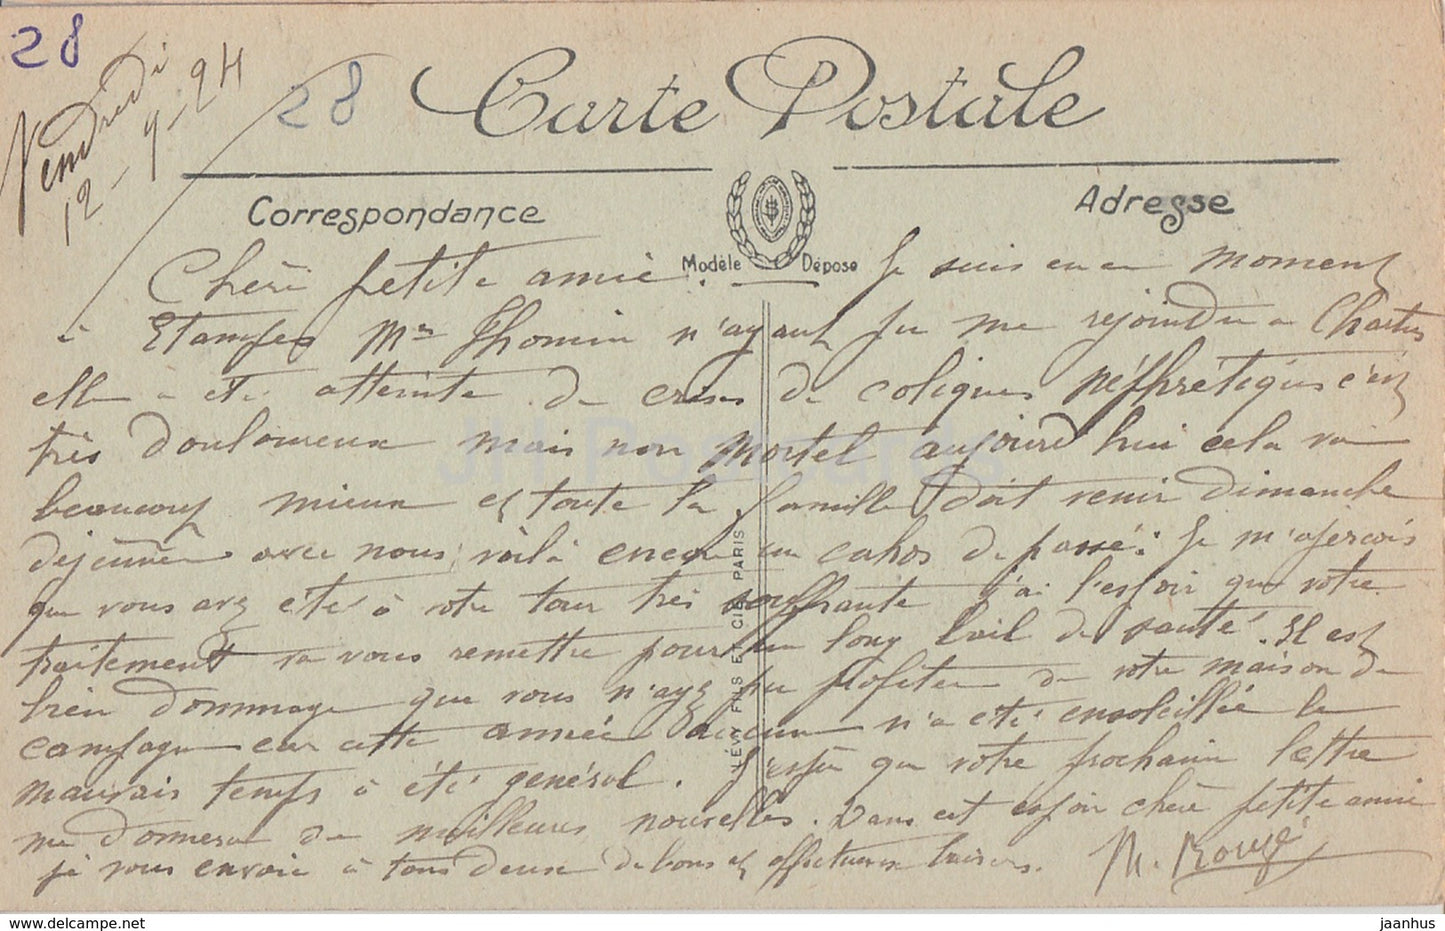 28
Vendredi
12-9-24
28
Carte Postale
Correspondance
Adresse
Modèle Déposé
Chère petite amie. Je suis en ce moment
à Etampes Me Thomin n'ayant pu me rejoindre à Chartres
elle a été atteinte de crises de coliques néphrétiques c'est
très douloureux mais non mortel aujourd'hui cela va
beaucoup mieux et toute la famille doit venir dimanche
déjeuner avec nous voilà encore un cahos de passé. Je m'aperçois
que vous avez été à votre tour très souffrante j'ai l'espoir que votre
traitement va vous remettre pour un long bail de santé. Il est
bien dommage que vous n'ayez pu profiter de votre maison de
campagne car cette année aucun n'a été ensoleillée le
mauvais temps à été général. J'espère que votre prochaine lettre
me donnera de meilleures nouvelles. Dans cet espoir chère petite amie
je vous envoie à tous deux de bons et affectueux baisers.
M. Rougé
LÉVY FILS ET CIE PARIS
JH Postcards
www.delcampe.net
jaanhus